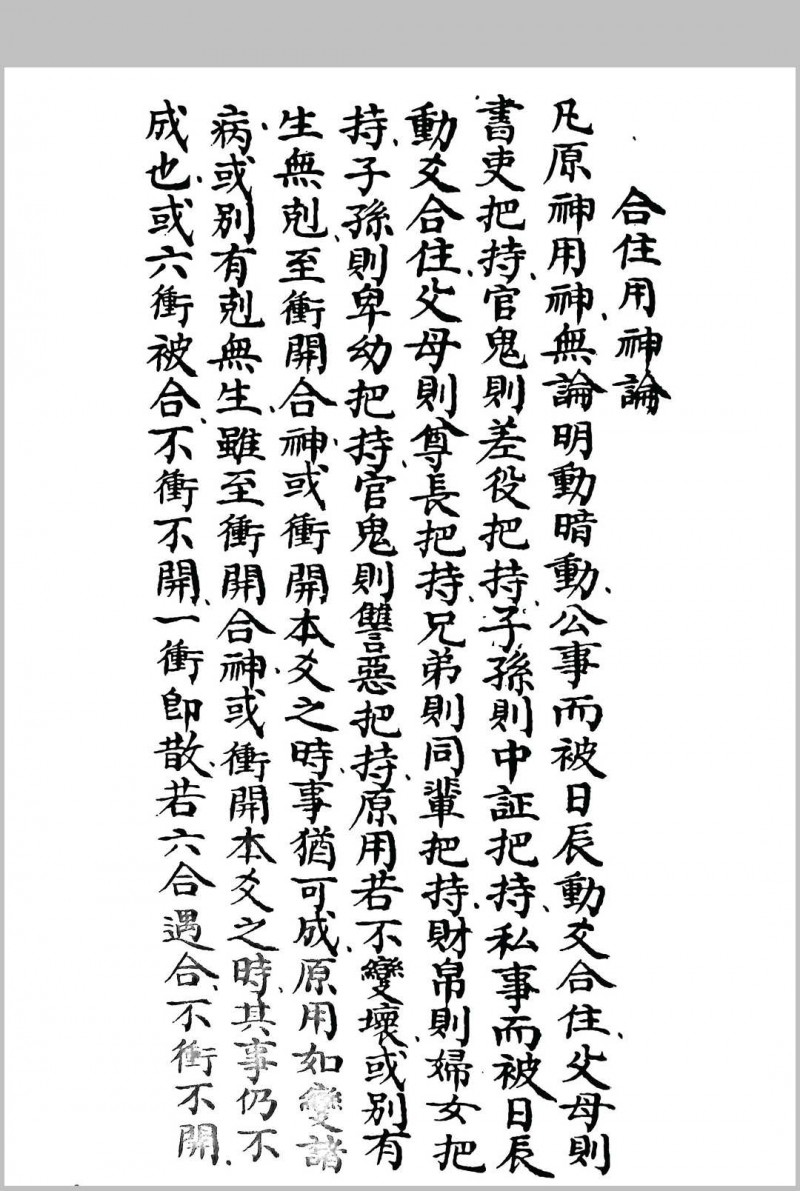 合住用神論
凡原神用神、無論明動暗動、公事而被日辰動爻合住、父母則
書吏把持、官鬼則差役把持、子孫則中証把持、私事而被日辰
動爻合住、父母則尊長把持、兄弟則同輩把持、財帛則婦女把
持、子孫則卑幼把持、官鬼則讐惡把持、原用若不變壞、或別有
生無剋、至衝開合神、或衝開本爻之時、事猶可成、原用如變諸
病、或別有剋無生、雖至衝開合神、或衝開本爻之時、其事仍不
成也、或六衝被合、不衝不開、一衝即散、若六合遇合、不衝不開、